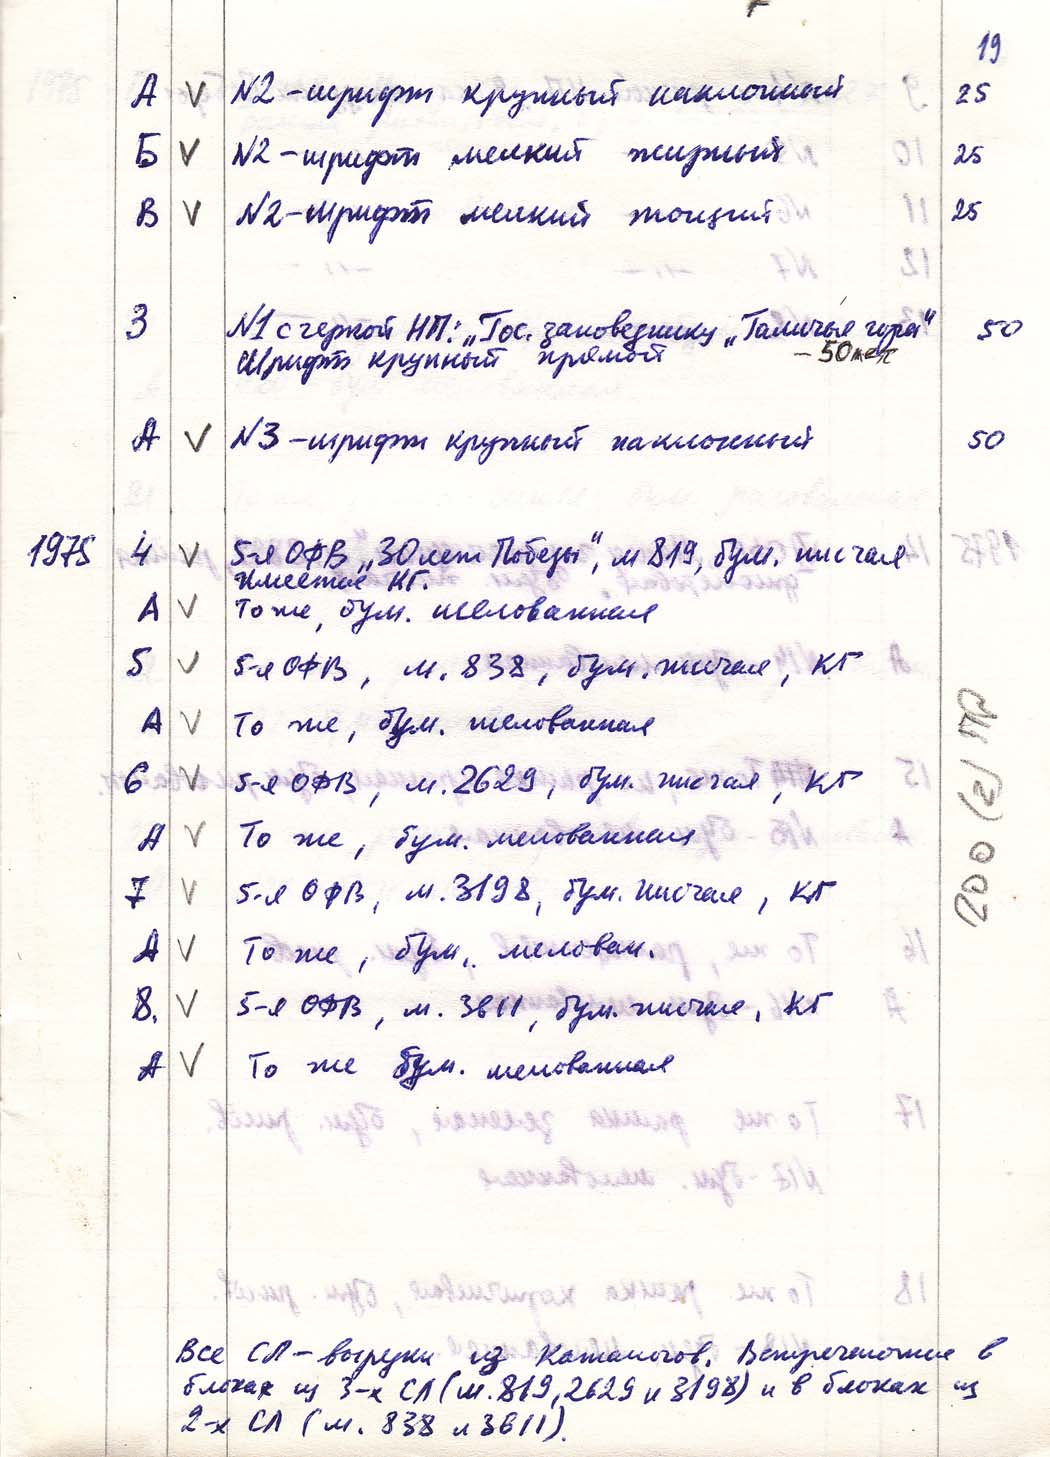 19
А V N2 – шрифт крупный наклонный 25
Б V N2 – шрифт мелкий жирный 25
В V N2 – шрифт мелкий тощий 25
3 N1 с черной НП: „Гос. заповеднику „Галичья гора“ 50
Шрифт крупный прямой – 50 лет
А V N3 – шрифт крупный наклонный 50
1975 4 V 5-я ОФВ „30 лет Победы“, м 819, бум. писчая
имеется КГ.
А V То же, бум. мелованная
5 V 5-я ОФВ, м. 838, бум. писчая, КГ
А V То же, бум. мелованная
6 V 5-я ОФВ, м. 2629, бум. писчая, КГ
А V То же, бум. мелованная
7 V 5-я ОФВ, м. 3198, бум. писчая, КГ
А V То же, бум. мелован.
8. V 5-я ОФВ, м. 3611, бум. писчая, КГ
А V То же бум. мелованная
200 (г)
Все СЛ – вырезки из каталогов. Встречаются в
блоках из 3-х СЛ (м. 819, 2629 и 3198) и в блоках из
2-х СЛ (м. 838 и 3611).